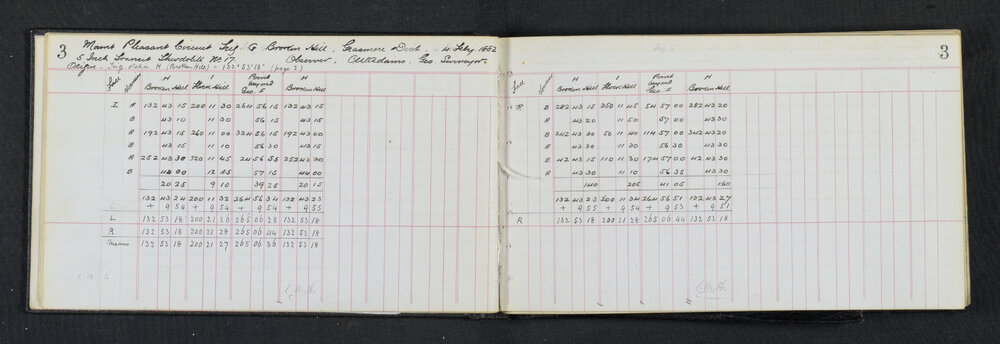 3
Mount Pleasant Circuit Trig G Broken Hill. Grasmere Dist. 4 Feby 1882
5 Inch Transit Theodolite No 17. Observer, CWAdams. Geo. Surveyor.
Origin. Trig. Station H (Broken Hill) = 132° 53' 18" (page 2)
H Broken Hill I Hill Point beyond Geo. F H Broken Hill
L A 132 43 15 200 11 30 264 56 15 132 43 15
B 43 10 11 30 56 15 43 15
A 192 43 15 260 11 00 324 56 15 192 43 00
B 43 15 11 10 56 30 43 15
A 252 43 30 320 11 45 24 56 55 252 43 30
B 44 00 12 15 57 15 44 00
20 25 9 10 39 25 20 15
132 43 24 200 11 32 264 56 34 132 43 23
+ 9 54 + 9 54 + 9 54 + 9 55
L 132 53 18 200 21 26 265 06 28 132 53 18
R 132 53 18 200 21 28 265 06 44 132 53 18
Means 132 53 18 200 21 27 265 06 36 132 53 18
3
H Broken Hill I Hill Point beyond Geo. F H Broken Hill
R B 282 43 15 350 11 45 54 57 00 282 43 20
A 43 20 11 50 57 00 43 30
B 342 43 30 50 11 40 114 57 00 342 43 20
A 43 30 11 30 56 30 43 30
B 42 43 15 110 11 30 174 57 00 42 43 30
A 43 30 11 10 56 35 43 30
140 205 41 05 160
132 43 23 200 11 34 264 56 51 132 43 27
+ 9 55 + 9 54 + 9 53 + 9 51
R 132 53 18 200 21 28 265 06 44 132 53 18